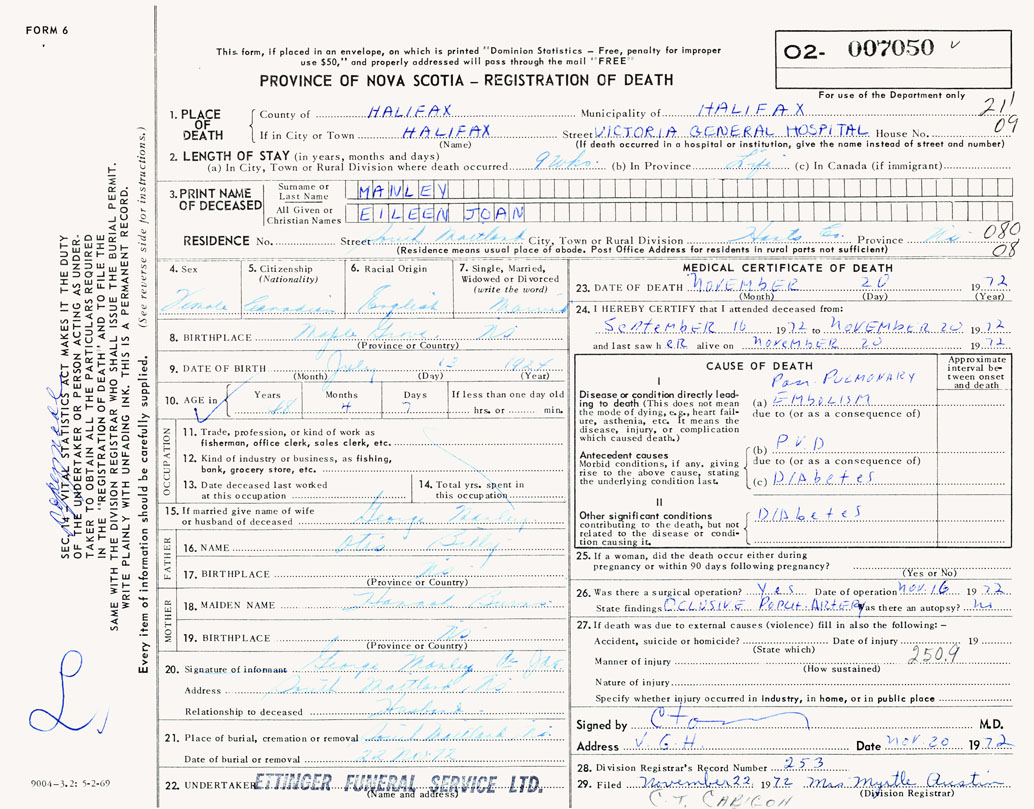 FORM 6
This form, if placed in an envelope, on which is printed "Dominion Statistics – Free, penalty for improper
use $50," and properly addressed will pass through the mail "FREE"
PROVINCE OF NOVA SCOTIA – REGISTRATION OF DEATH
02- 007050
For use of the Department only
211
09
1. PLACE OF DEATH
County of HALIFAX Municipality of HALIFAX
If in City or Town HALIFAX Street VICTORIA GENERAL HOSPITAL House No.
(Name) (If death occurred in a hospital or institution, give the name instead of street and number)
2. LENGTH OF STAY (in years, months and days)
(a) In City, Town or Rural Division where death occurred 9 wks. (b) In Province Life (c) In Canada (if immigrant)
3. PRINT NAME OF DECEASED
Surname or Last Name MANLEY
All Given or Christian Names EILEEN JOAN
RESIDENCE No. Street South Maitland City, Town or Rural Division Hants Co. Province N.S.
080
08
(Residence means usual place of abode. Post Office Address for residents in rural parts not sufficient)
4. Sex
Female
5. Citizenship
(Nationality)
Canadian
6. Racial Origin
English
7. Single, Married,
Widowed or Divorced
(write the word)
Married
8. BIRTHPLACE Maple Grove, NS
(Province or Country)
9. DATE OF BIRTH July 13 1924
(Month) (Day) (Year)
10. AGE in
Years 48
Months 4
Days 7
If less than one day old
hrs. or min.
OCCUPATION
11. Trade, profession, or kind of work as
fishermen, office clerk, sales clerk, etc.
12. Kind of industry or business, as fishing,
bank, grocery store, etc.
13. Date deceased last worked
at this occupation
14. Total yrs. spent in
this occupation
15. If married give name of wife
or husband of deceased George Manley
FATHER
16. NAME Otis
17. BIRTHPLACE N.S.
(Province or Country)
MOTHER
18. MAIDEN NAME Hannah
19. BIRTHPLACE NS
(Province or Country)
20. Signature of informant George Manley
Address South Maitland, NS
Relationship to deceased Husband
21. Place of burial, cremation or removal South Maitland NS
Date of burial or removal 22 Nov. 72
22. UNDERTAKER ETTINGER FUNERAL SERVICE LTD.
(Name and address)
MEDICAL CERTIFICATE OF DEATH
23. DATE OF DEATH NOVEMBER 20 1972
(Month) (Day) (Year)
24. I HEREBY CERTIFY that I attended deceased from:
SEPTEMBER 16 1972 to NOVEMBER 20 1972
and last saw h ER alive on NOVEMBER 20 1972
CAUSE OF DEATH
Approximate
interval be-
tween onset
and death
I
Disease or condition directly lead-
ing to death (This does not mean
the mode of dying, e.g., heart fail-
ure, asthenia, etc. It means the
disease, injury, or complication
which caused death.)
Poss. PULMONARY
(a) EMBOLISM
due to (or as a consequence of)
Antecedent causes
Morbid conditions, if any, giving
rise to the above cause, stating
the underlying condition last.
(b) PVD
due to (or as a consequence of)
(c) DIAbetes
II
Other significant conditions
contributing to the death, but not
related to the disease or condi-
tion causing it.
DIAbetes
25. If a woman, did the death occur either during
pregnancy or within 90 days following pregnancy?
(Yes or No)
26. Was there a surgical operation? Yes Date of operation NOV. 16 1972
State findings OCLUSIVE POPLIT. ARTERY Was there an autopsy? No
27. If death was due to external causes (violence) fill in also the following: –
Accident, suicide or homicide? Date of injury 19
(State which)
250.9
Manner of injury
(How sustained)
Nature of injury
Specify whether injury occurred in industry, in home, or in public place
Signed by M.D.
Address V.G.H. Date NOV 20 1972
28. Division Registrar's Record Number 253
29. Filed November 22, 1972 Mrs Myrtle Austin
(Division Registrar)
SEC. 14 – VITAL STATISTICS ACT MAKES IT THE DUTY
OF THE UNDERTAKER OR PERSON ACTING AS UNDER-
TAKER TO OBTAIN ALL THE PARTICULARS REQUIRED
IN THE "REGISTRATION OF DEATH" AND TO FILE THE
SAME WITH THE DIVISION REGISTRAR WHO SHALL ISSUE THE BURIAL PERMIT.
WRITE PLAINLY WITH UNFADING INK. THIS IS A PERMANENT RECORD.
Every item of information should be carefully supplied. (See reverse side for instructions.)
9004–3.2: 5-2-69